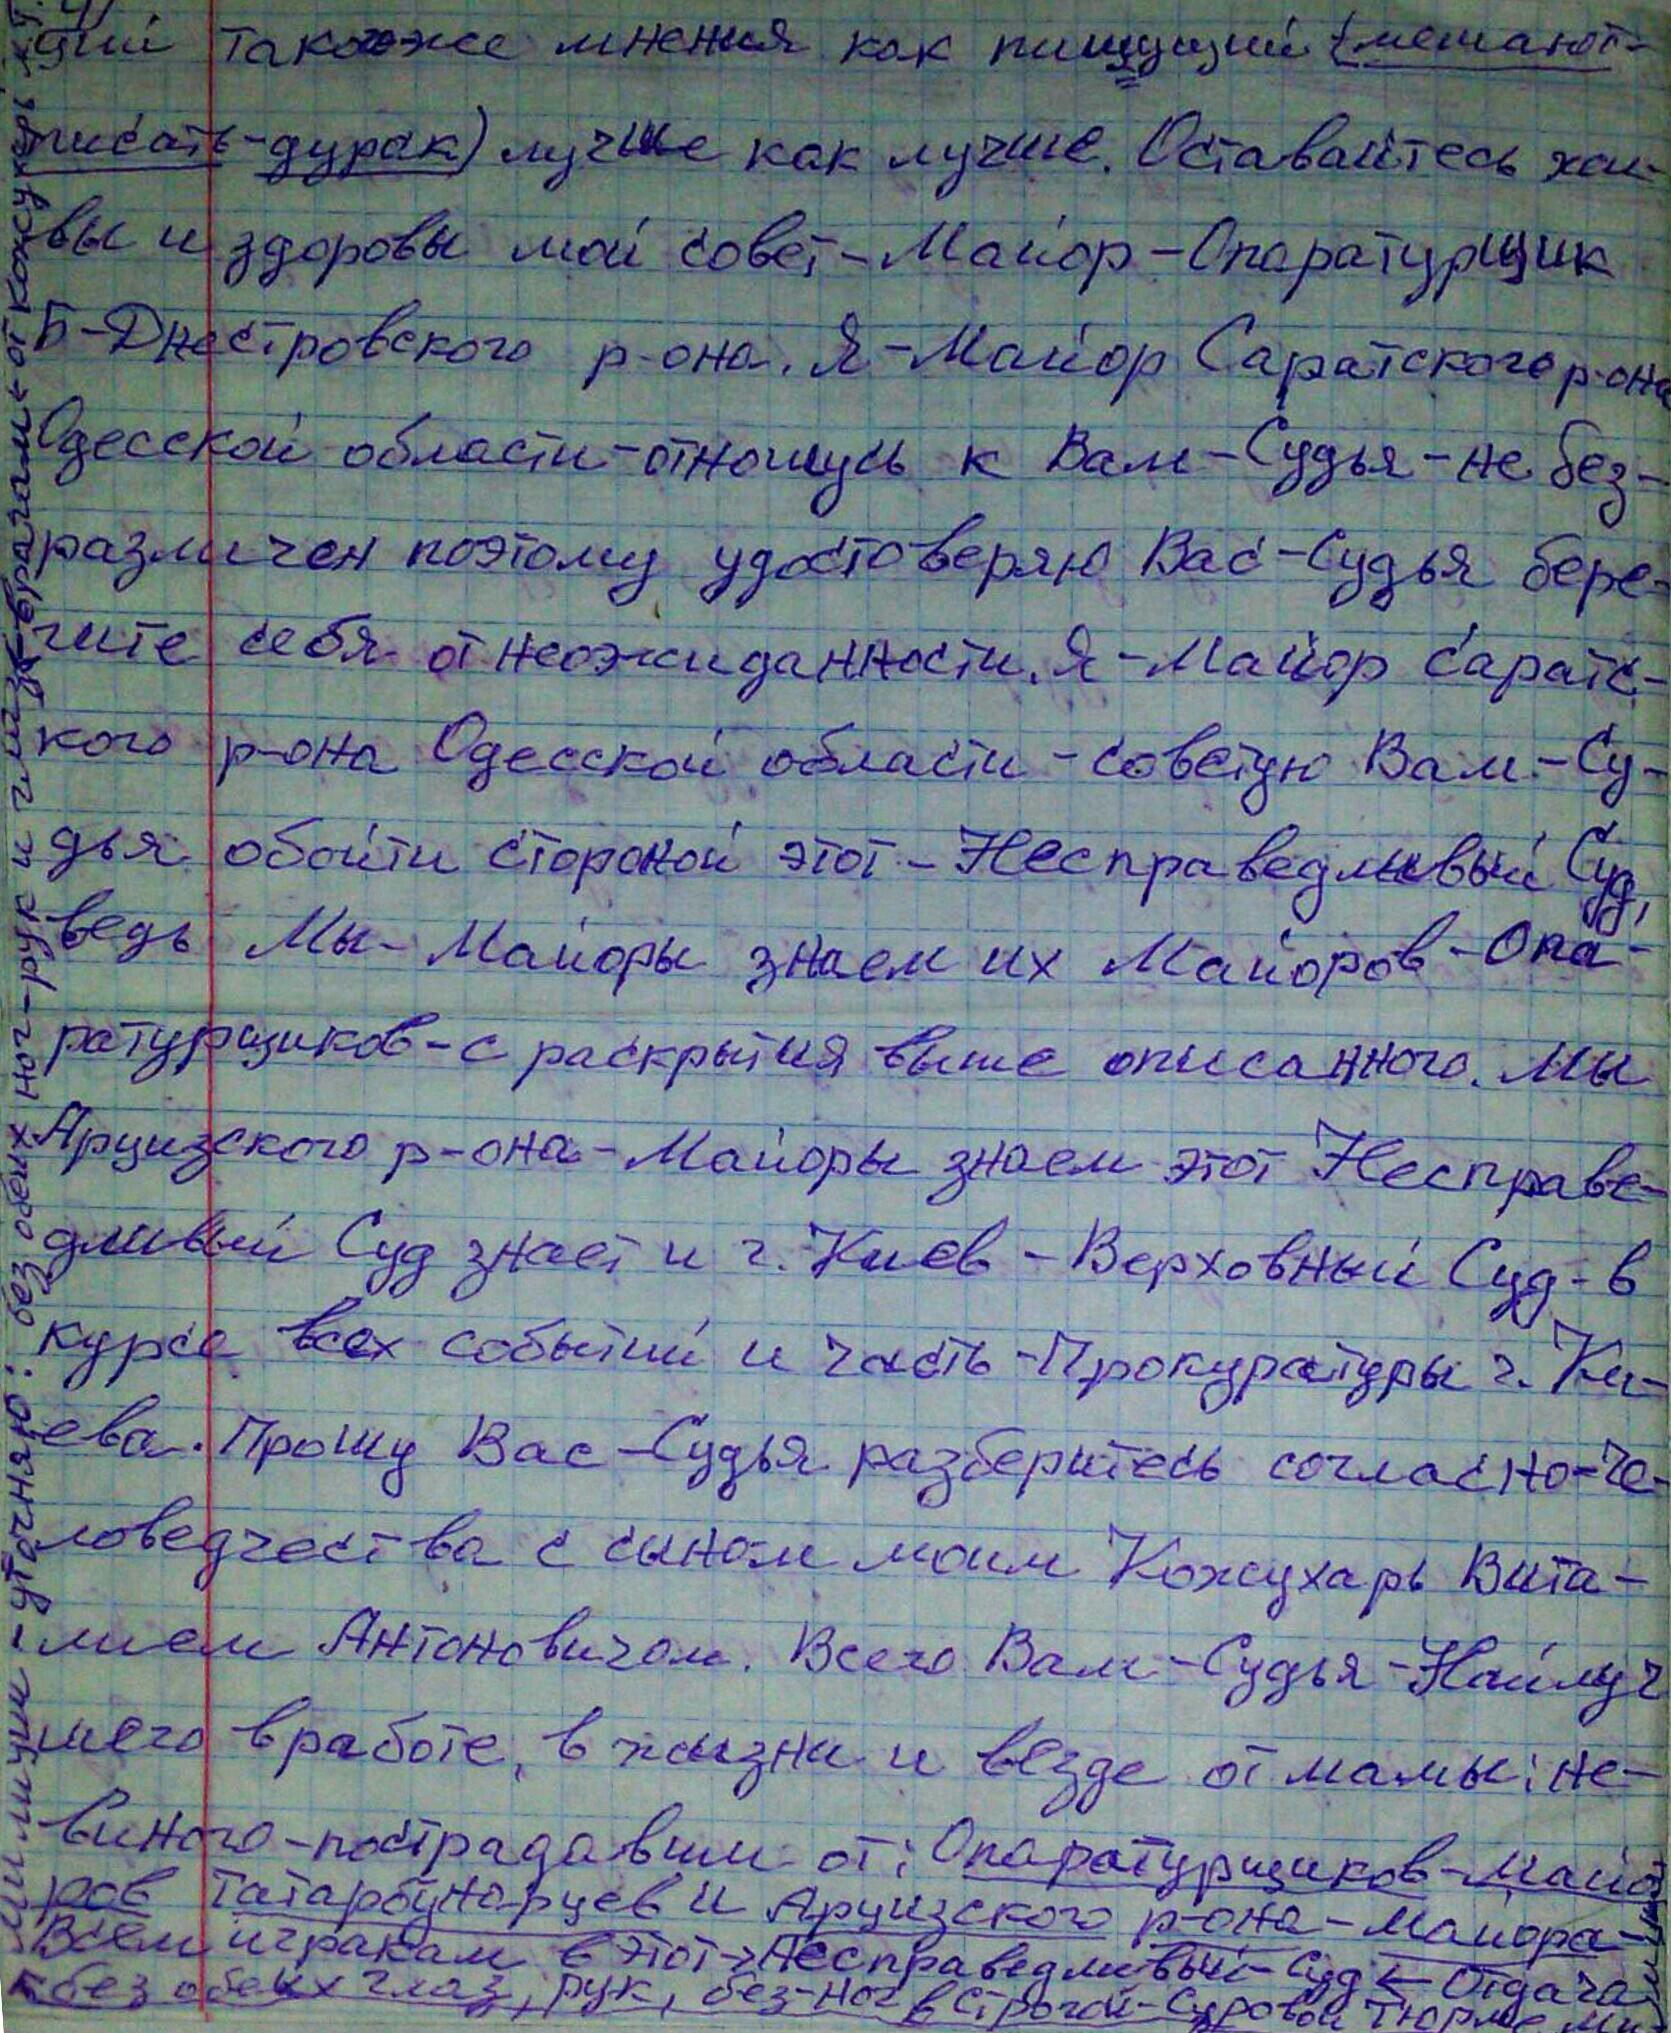 щий такогоже мнения как пишущий (мешают-
писать-дурак) лучше как лучше. Оставайтесь жи-
вы и здоровы мой совет-Майор-Опаратурщик
Б-Днестровского р-она. Я-Майор Саратского р-она
Одесской области-отношусь к Вам-Судья-не без-
различен поэтому удостоверяю Вас-Судья бере-
гите себя от неожиданности. Я-Майор Саратс-
кого р-она Одесской области-советую Вам-Су-
дья обойти стороной этот-Несправедливый Суд,
ведь Мы-Майоры знаем их Майоров-Опа-
ратурщиков-с раскрытия выше описанного. Мы
Арцизского р-она-Майоры знаем этот Несправе-
дливый Суд знает и г. Киев-Верховный Суд-в
курсе всех событий и часть-Прокуратуры г. Ки-
ева. Прошу Вас-Судья разберитесь согласно-че-
ловедчества с сыном моим Кожухарь Вита-
лием Антоновичом. Всего Вам-Судья-Найлуч
шего в работе, в жизни и везде от мамы: не-
виного-пострадавшим от: Опаратурщиков-Майо
ров Татарбунарцев и Арцизского р-она-Майора-
Всем игракам в этот→Несправедливый-Суд←Отдача
без обеих глаз, рук, без-ног в Строгой-Суровой Тюрме
уточняю: без обеих ног-рук и глаз-врагам←от Кожухарь